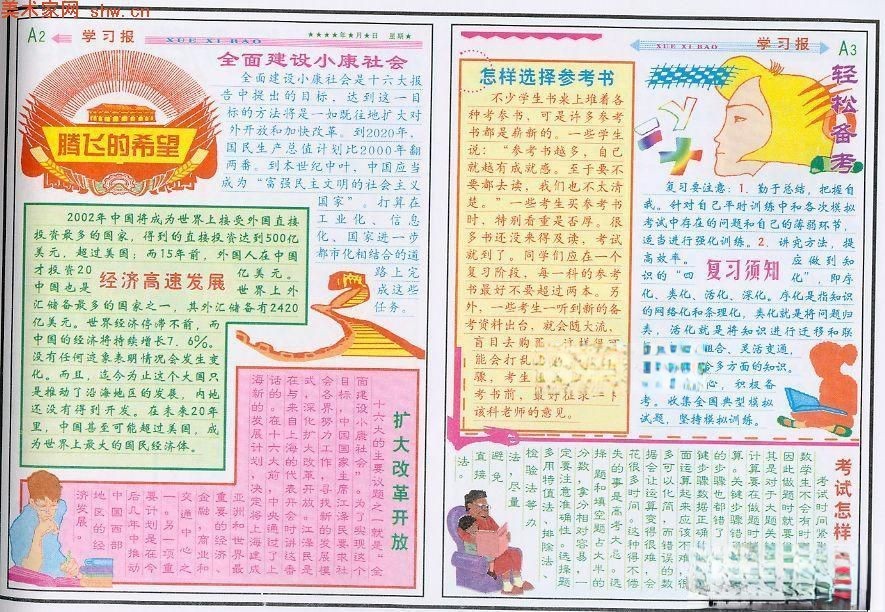 美术家网 shw.cn
A2
学习报
XUE XI BAO
★★★★年★月★日 星期★
腾飞的希望
全面建设小康社会
全面建设小康社会是十六大报
告中提出的目标,达到这一目
标的方法将是一如既往地扩大对
外开放和加快改革。到2020年,
国民生产总值计划比2000年翻
两番。到本世纪中叶,中国应当
成为“富强民主文明的社会主义
国家”。打算在
工业化、信息
化、国家进一步
都市化相结合的道
路上完
成这些
任务。
经济高速发展
2002年中国将成为世界上接受外国直接
投资最多的国家,得到的直接投资达到500亿
美元,超过美国;而15年前,外国人在中国
才投资20亿美元。
中国也是世界上外
汇储备最多的国家之一,其外汇储备有2420
亿美元。世界经济停滞不前,而
中国的经济将持续增长7.6%。
没有任何迹象表明情况会发生变
化。而且,迄今为止这个大国只
是推动了沿海地区的发展,内地
还没有得到开发。在未来20年
里,中国甚至可能超过美国,成
为世界上最大的国民经济体。
扩大改革开放
十六大的主要议题之一就是“全
面建设小康社会”。为了实现这个
目标,中国国家主席江泽民要求社
会各界努力工作,寻找新的发展模
式,深化扩大改革开放。江泽民是
在与来自上海的代表开会时讲这番
话的。在十六大前,中央通过了上
海新的发展计划,决定将上海建成
亚洲和世界最
重要的经济、
金融,商业和
交通中心之
一。另一项重
要计划是在今
后几年中推动
中国西部
地区的经
济发展。
XUE XI BAO
学习报
A3
怎样选择参考书
不少学生书桌上堆着各
种考参书,可是许多参考
书都是崭新的。一些学生
说:“参考书越多,自己
就越有成就感。至于要不
要都去读,我们也不太清
楚。”一些考生买参考书
时,特别看重是否厚。很
多书还没来得及读,考试
就到了。同学们应在一个
复习阶段,每一科的参考
书最好不要超过两本。另
外,一些考生一听到新的备
考资料出台,就会随大流,
盲目去购
能会打乱
骤,考生
考书前,最好征求一下
该科老师的意见。
轻松备考
复习须知
复习要注意:1.勤于总结,把握自
我。针对自己平时训练中和各次模拟
考试中存在的问题和自己的薄弱环节,
适当进行强化训练。2.讲究方法,提
高效率。应做到知
识的“四化”,即序
化、类化、活化、深化。序化是指知识
的网络化和条理化,类化就是将问题归
类,活化就是将知识进行迁移和联
组合、灵活变通,
多方面的知识。
心,积极备
考。收集全国典型模拟
试题,坚持模拟训练。
考试怎样
考试时间紧
数学生不会有时
因此做题时就要
其是对于大题关
计算要在做题时
算。关键步骤错
的步也都错了
键步骤数据正确
面运算起来应该不难,很
多可以化简,而错误的数
据会让运算变得很难,会
花很多时间。这种得不偿
失的事是高考大忌。选
择题和填空题占大半的
分数,拿分相对容易,一
定要注意准确性。选择题
多用特值法、排除法、
检验法等办
法,尽量
避免
直接
法。